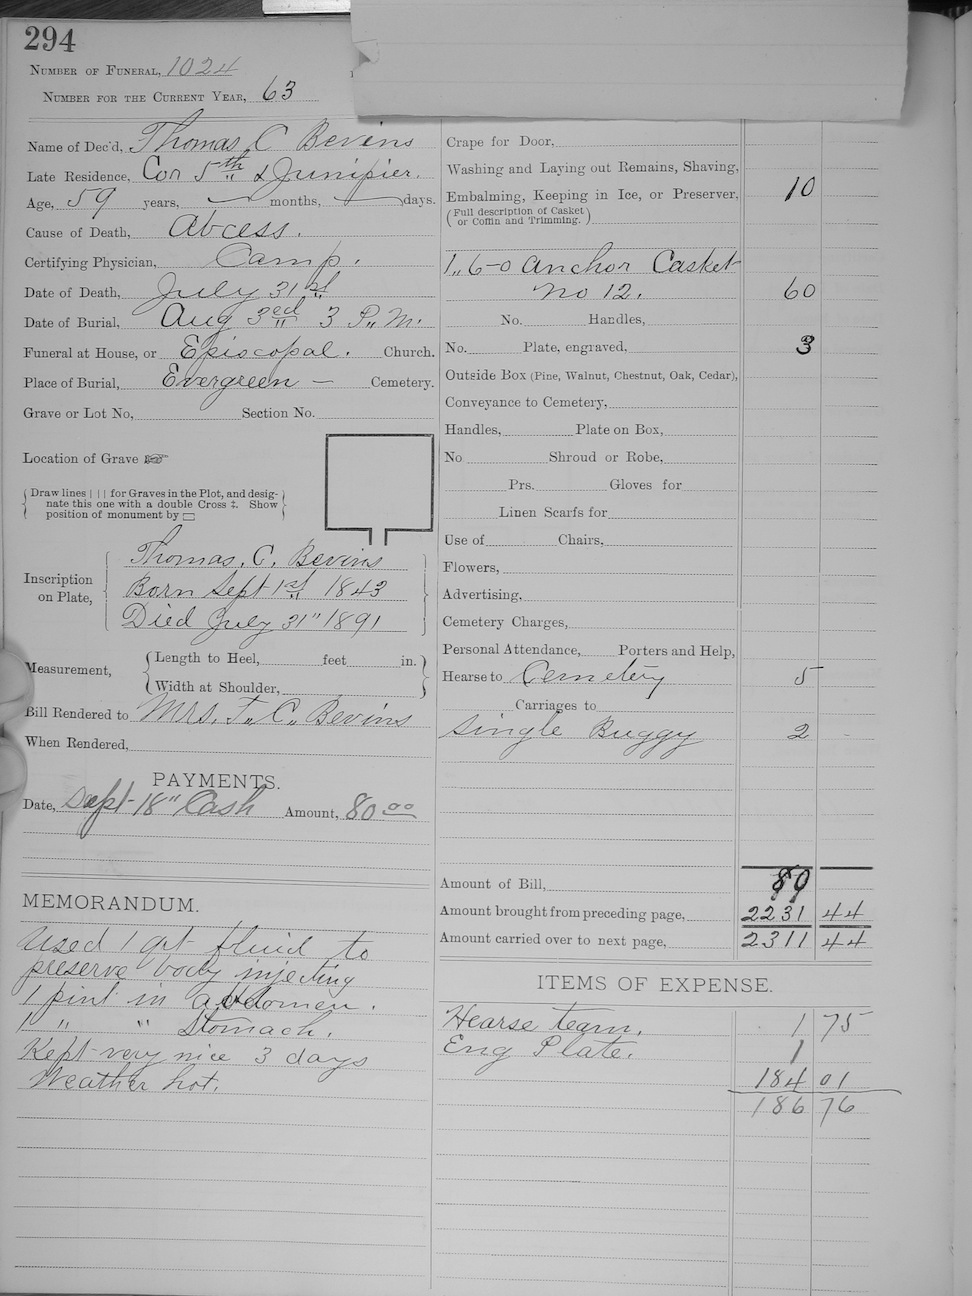 294
NUMBER OF FUNERAL, 1024
NUMBER FOR THE CURRENT YEAR, 63
Name of Dec'd, Thomas C Bevins
Late Residence, Cor 5th & Junipier.
Age, 59 years, months, days.
Cause of Death, Abcess.
Certifying Physician, Camp.
Date of Death, July 31st
Date of Burial, Aug 3ed 3 P,, M.
Funeral at House, or Episcopal. Church.
Place of Burial, Evergreen — Cemetery.
Grave or Lot No, Section No.
Location of Grave ☞
Draw lines | | | for Graves in the Plot, and desig-
nate this one with a double Cross ‡. Show
position of monument by ▭
Inscription
on Plate,
Thomas. C. Bevins
Born Sept 1st 1843
Died July 31" 1891
Measurement,
Length to Heel, feet in.
Width at Shoulder,
Bill Rendered to Mrs. T,, C,, Bevins
When Rendered,
PAYMENTS.
Date, Sept 18" Cash Amount, 80.00
MEMORANDUM.
Used 1 qrt fluid to
preserve body injecting
1 pint in abdomen.
1 " " Stomach.
Kept very nice 3 days
Weather hot.
Crape for Door,
Washing and Laying out Remains, Shaving,
Embalming, Keeping in Ice, or Preserver, 10
(Full description of Casket
or Coffin and Trimming.)
1,, 6-0 Anchor Casket
no 12. 60
No. Handles,
No. Plate, engraved, 3
Outside Box (Pine, Walnut, Chestnut, Oak, Cedar),
Conveyance to Cemetery,
Handles, Plate on Box,
No Shroud or Robe,
Prs. Gloves for
Linen Scarfs for
Use of Chairs,
Flowers,
Advertising,
Cemetery Charges,
Personal Attendance, Porters and Help,
Hearse to Cemetery 5
Carriages to
Single Buggy 2 -
Amount of Bill, 80
Amount brought from preceding page, 2231 44
Amount carried over to next page, 2311 44
ITEMS OF EXPENSE.
Hearse team. 1 75
Eng Plate. 1
184 01
186 76